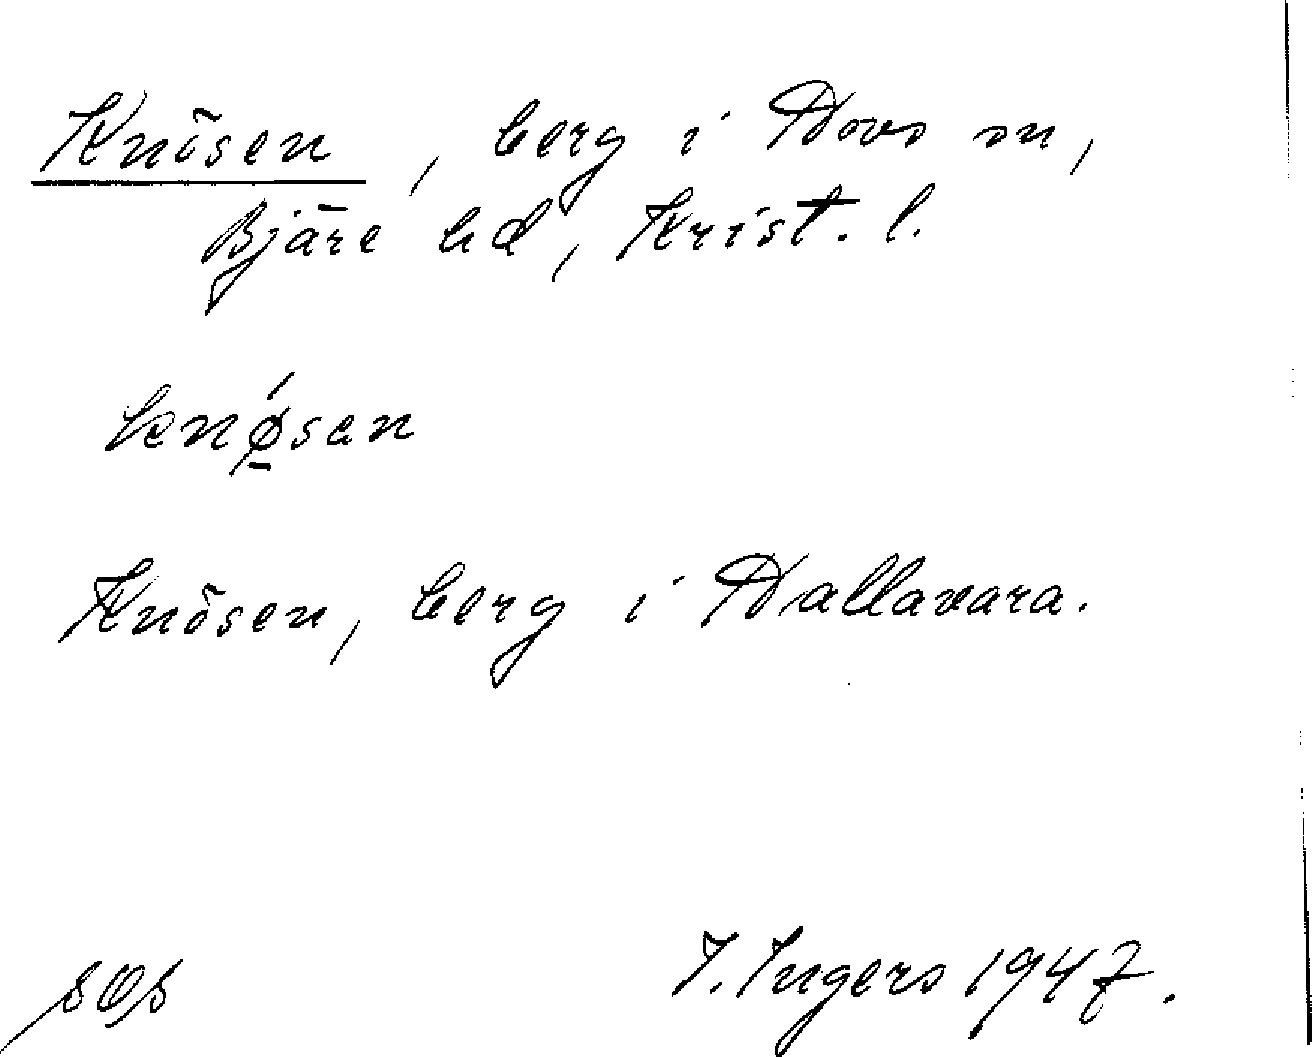 Knösen, berg i Hovs sn,
Bjäre hd, Krist. l.
knǿ̱sen
Knösen, berg i Hallavara.
I. Ingers 1947.